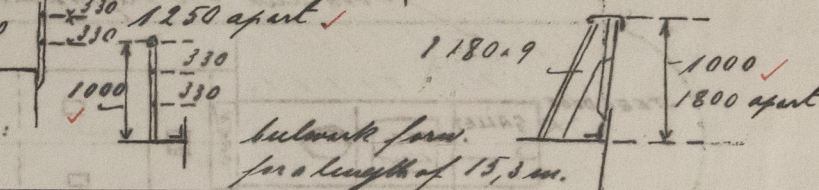 330
1250 apart
330
330
1000
330
180 x 9
1000
1800 apart
bulwark form.
for a length of 15,3 m.